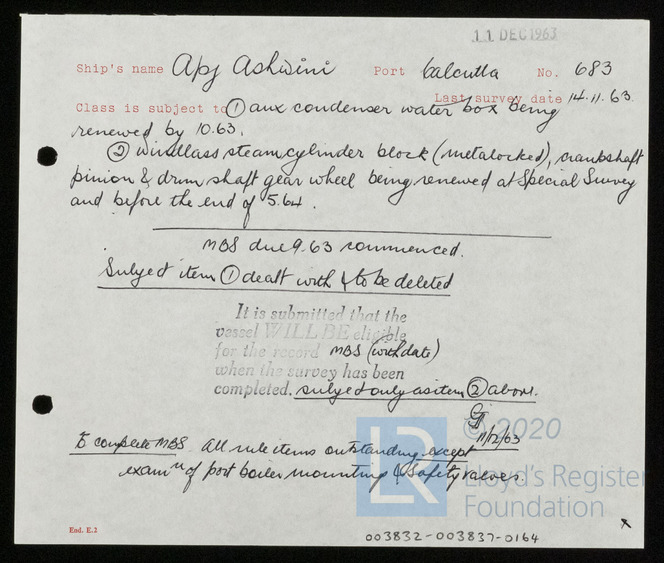 11 DEC 1963
Ship's name Apj Ashwini Port Calcutta No. 683
Last survey date 14.11.63.
Class is subject to ① aux condenser water box being
renewed by 10.63.
② windlass steam cylinder block (metalocked), crankshaft
pinion & drum shaft gear wheel being renewed at Special Survey
and before the end of 5.64.
MBS due 9.63 commenced.
Subject item ① dealt with & to be deleted
It is submitted that the
vessel WILL BE eligible
for the record MBS (with date)
when the survey has been
completed. subject only as item ② above.
11/12/63
To complete MBS All rule items outstanding except
examn of port boiler mounting & Safety valves.
© 2020
LR Lloyd's Register
Foundation
End. E.2
003832-003837-0164